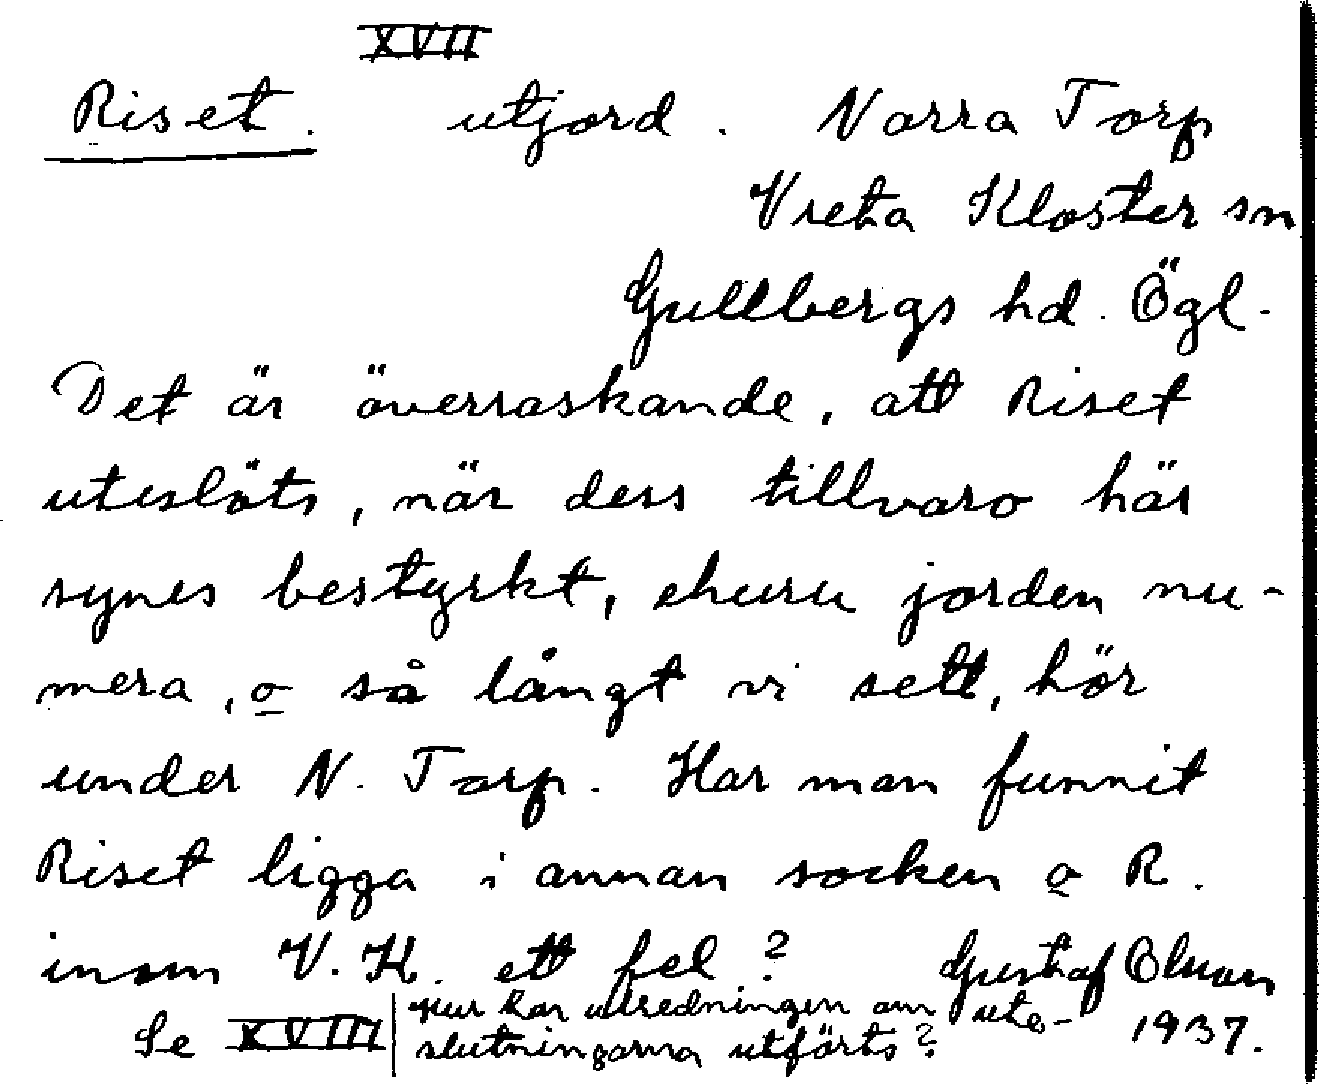 XVII
Riset. utjord. Norra Torp
Vreta Kloster sn
Gullbergs hd. Ögl.
Det är överraskande, att Riset
uteslöts, när dess tillvaro här
synes bestyrkt, ehuru jorden nu-
mera, o så långt vi sett, hör
under N. Torp. Har man funnit
Riset ligga i annan socken o R.
inom V. K. ett fel? Gustaf Olsson
Se XVIII Hur har utredningen om ute- 1937.
slutningarna utförts?